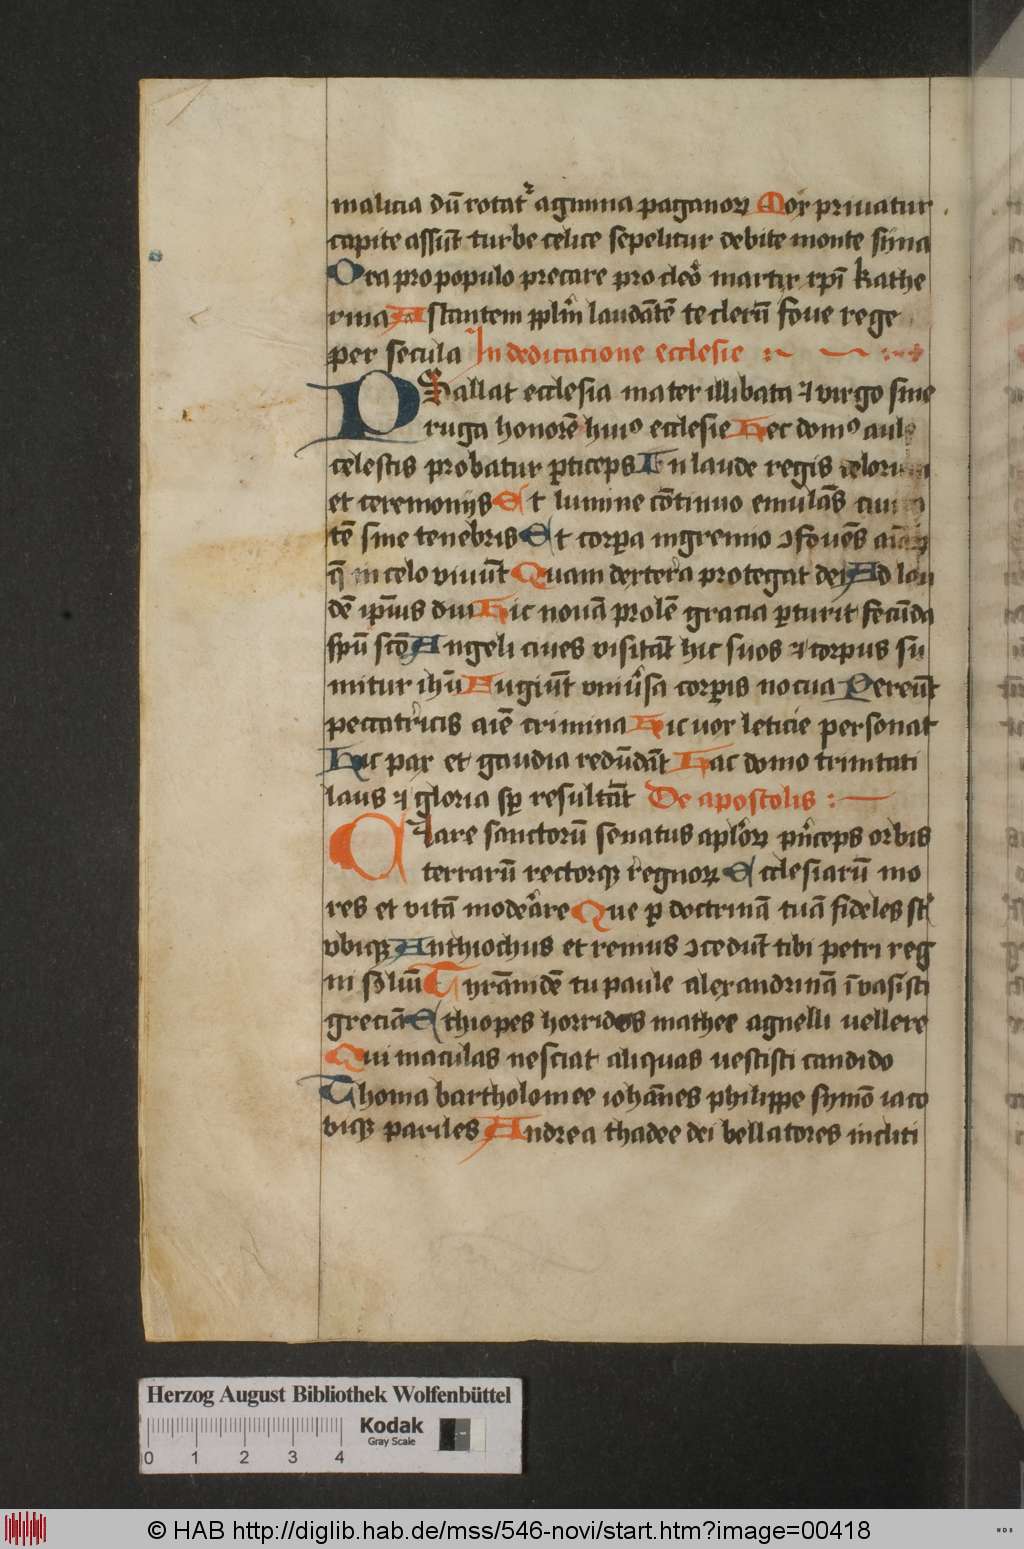 malicia dū rotatʳ agmina paganoꝝ Mox priuatur
capite assūt turbe celice sepelitur debite monte syna
Ora pro populo precare pro cleo martir xpi̅ kathe
rina Astantem pplm̅ laudātē te clerū foue rege
per secula In dedicacione ecclesie
PSallat ecclesia mater illibata ⁊ virgo sine
ruga honorē huiꝰ ecclesie Hec domꝰ aule
celestis probatur ꝑticeps In laude regis celorum
et ceremonijs Et lumine cōtinuo emulās ciui
tē sine tenebris Et corꝑa in gremio ꝯfouēs
q̄ in celo viuūt Quam dextera protegat dei Ad lau
dē ipīus diu Hic nouā prolē gracia ꝑturit fecūda
spū scō Angeli ciues visitāt hic suos ⁊ corpus su
mitur ihū Fugiūt vniūsa corꝑis nocua Pereūt
peccatricis aīe crimina Hic vox leticie personat
Hic pax et gaudia redūdāt Hac domo trinitati
laus ⁊ gloria sꝑ resultāt De apostolis :
Clare sanctorū senatus aplōꝝ pnceps orbis
terrarū rectorqꝫ regnoꝝ Ecclesiarū mo
res et vitā moderare Que ꝑ doctrinā tuā fideles st̄
vbiqꝫ Anthiochus et remus ꝯcedūt tibi petri reg
ni soliū Tyrānidē tu paule alexandrinā īvasisti
greciā Ethiopes horridos mathee agnelli vellere
Qui maculas nesciat aliquas vestisti candido
Thoma bartholomee iohānes philippe symō iaco
biqꝫ pariles Andrea thadee dei bellatores incliti
Herzog August Bibliothek Wolfenbüttel
Kodak
Gray Scale
0 1 2 3 4
© HAB http://diglib.hab.de/mss/546-novi/start.htm?image=00418